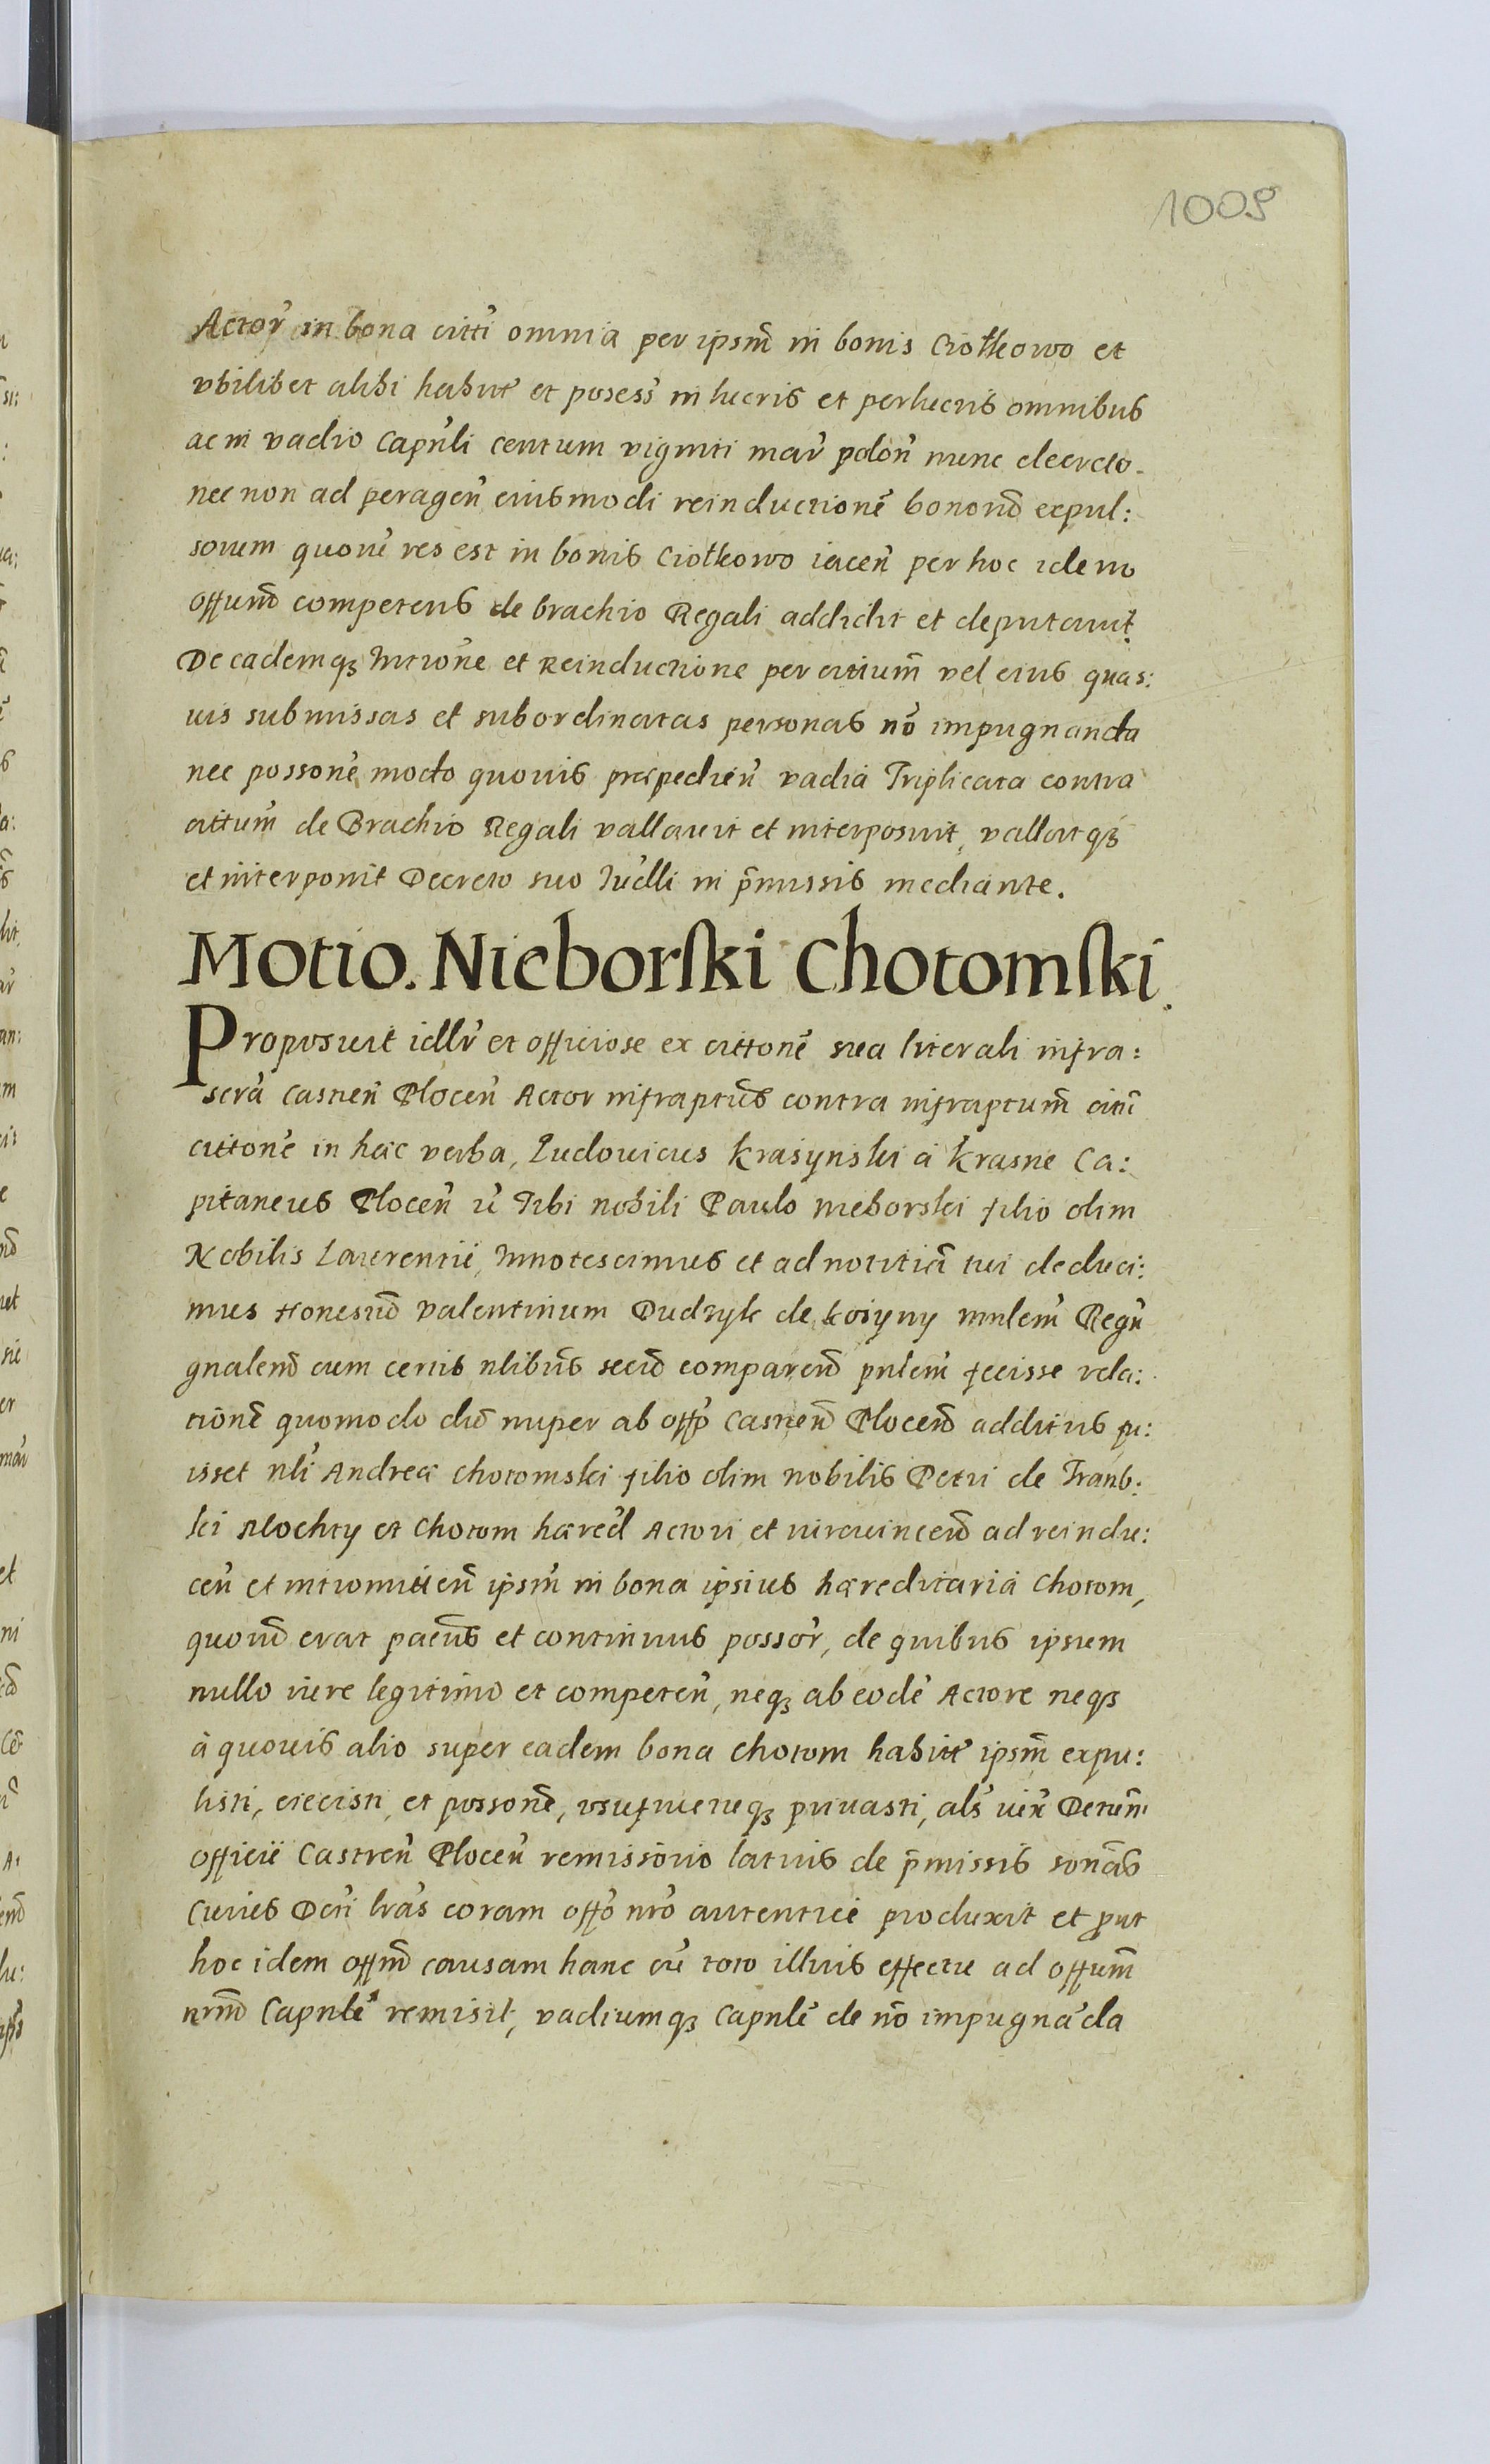 1009
Actor in bona citti omnia per ipsm in bonis Ciołkowo et
vbilibet alibi habite et posess in lucris et perlucris omnibus
ac in vadio Capnli centum viginti mar polon nunc decreto
nec non ad peragen eiusmodi reinductione bonorū expul:
sorum quoru res est in bonis Ciołkowo iacen per hoc idem
offum competens de brachio Regali addidit et deputauit
De eademqȝ Introne et Reinductione per citium vel eius quas:
uis submissas et subordinatas personas nō impugnanda
nec possone modo quouis præpedien vadia Triplicata contra
cittum de Brachio Regali vallauit et interposuit, vallatqȝ
et interponit Decreto suo Iuclli in p̄missis mediante.
Motio. Nieborski Chotomski.
Proposuit idlr et officiose ex cittone sua literali infra:
scra Castren Plocen Actor infraptus contra infraptum citu
cittone in hæc verba, Ludouicus Krasynski à Krasne Ca:
pitaneus Plocen ū Tibi nobili Paulo Nieborski filio olim
Nobilis Laurentii, Innotescimus et ad notitiā tui deduci:
mus Honestū Valentinum Dudzyk de Kozyny mnlem Regn
gnalem cum certis nlibus secū comparen pnlem fecisse rela:
tione quomodo dū nuper ab offo Castren Plocen additus fu:
isset nli Andreæ Chotomski filio olim nobilis Petri de Tranb:
ki Mochty et Chotom hæred Actori et uircuincen ad reindu:
cen et intromitten ipsm in bona ipsius hæreditaria Chotom,
quorū erat pacus et continuus possor, de quibus ipsum
nullo iure legitimo et competen, neqȝ ab eodē Actore neqȝ
à quouis alio super eadem bona Chotom habite ipsm expu:
listi, eiecisti et possone, vsufructuqȝ priuasti, als iux Detum
officii Castren Plocen remissorio latius de p̄missis sonas
Cuius Dcti lras coram offo nro autenticè produxit et prut
hoc idem offm causam hanc cū toto illius effectu ad offum
nrm Capnle remisit, vadiumqȝ Capnle de nō impugnāda